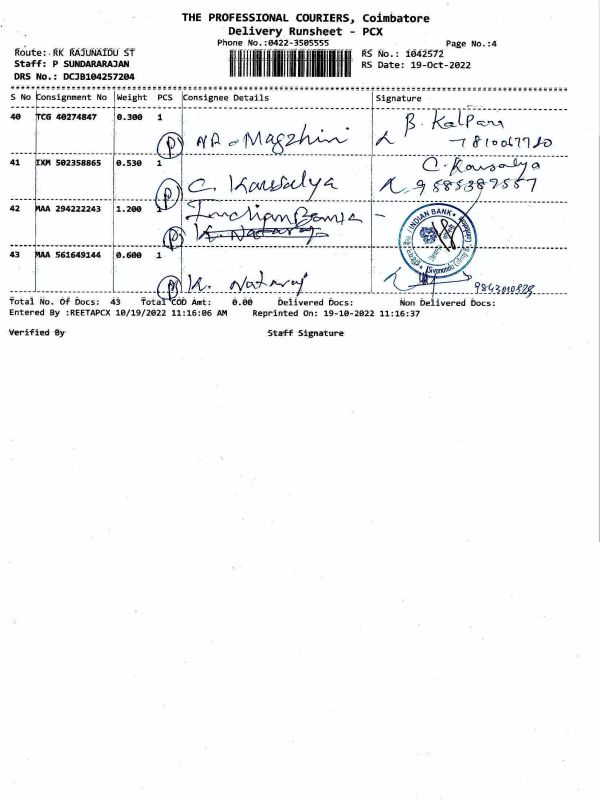 THE PROFESSIONAL COURIERS, Coimbatore
Delivery Runsheet - PCX
Phone No.:0422-3505555
Page No.:4
Route: RK RAJUNAIDU ST
RS No.: 1042572
Staff: P SUNDARARAJAN
RS Date: 19-Oct-2022
DRS No.: DCJB104257204
S No Consignment No Weight PCS Consignee Details Signature
40 TCG 40274847 0.300 1
B. Kalpana
P Magzhini
41 IXM 502358865 0.530 1
C. Kousalya
P C. Kousalya
42 MAA 294222243 1.200 1 Indian Bank
INDIAN BANK
P K. Nataraj
43 MAA 561649144 0.600 1
P K. Nataraj
Total No. Of Docs: 43 Total COD Amt: 0.00 Delivered Docs: Non Delivered Docs:
Entered By :REETAPCX 10/19/2022 11:16:06 AM Reprinted On: 19-10-2022 11:16:37
Verified By Staff Signature